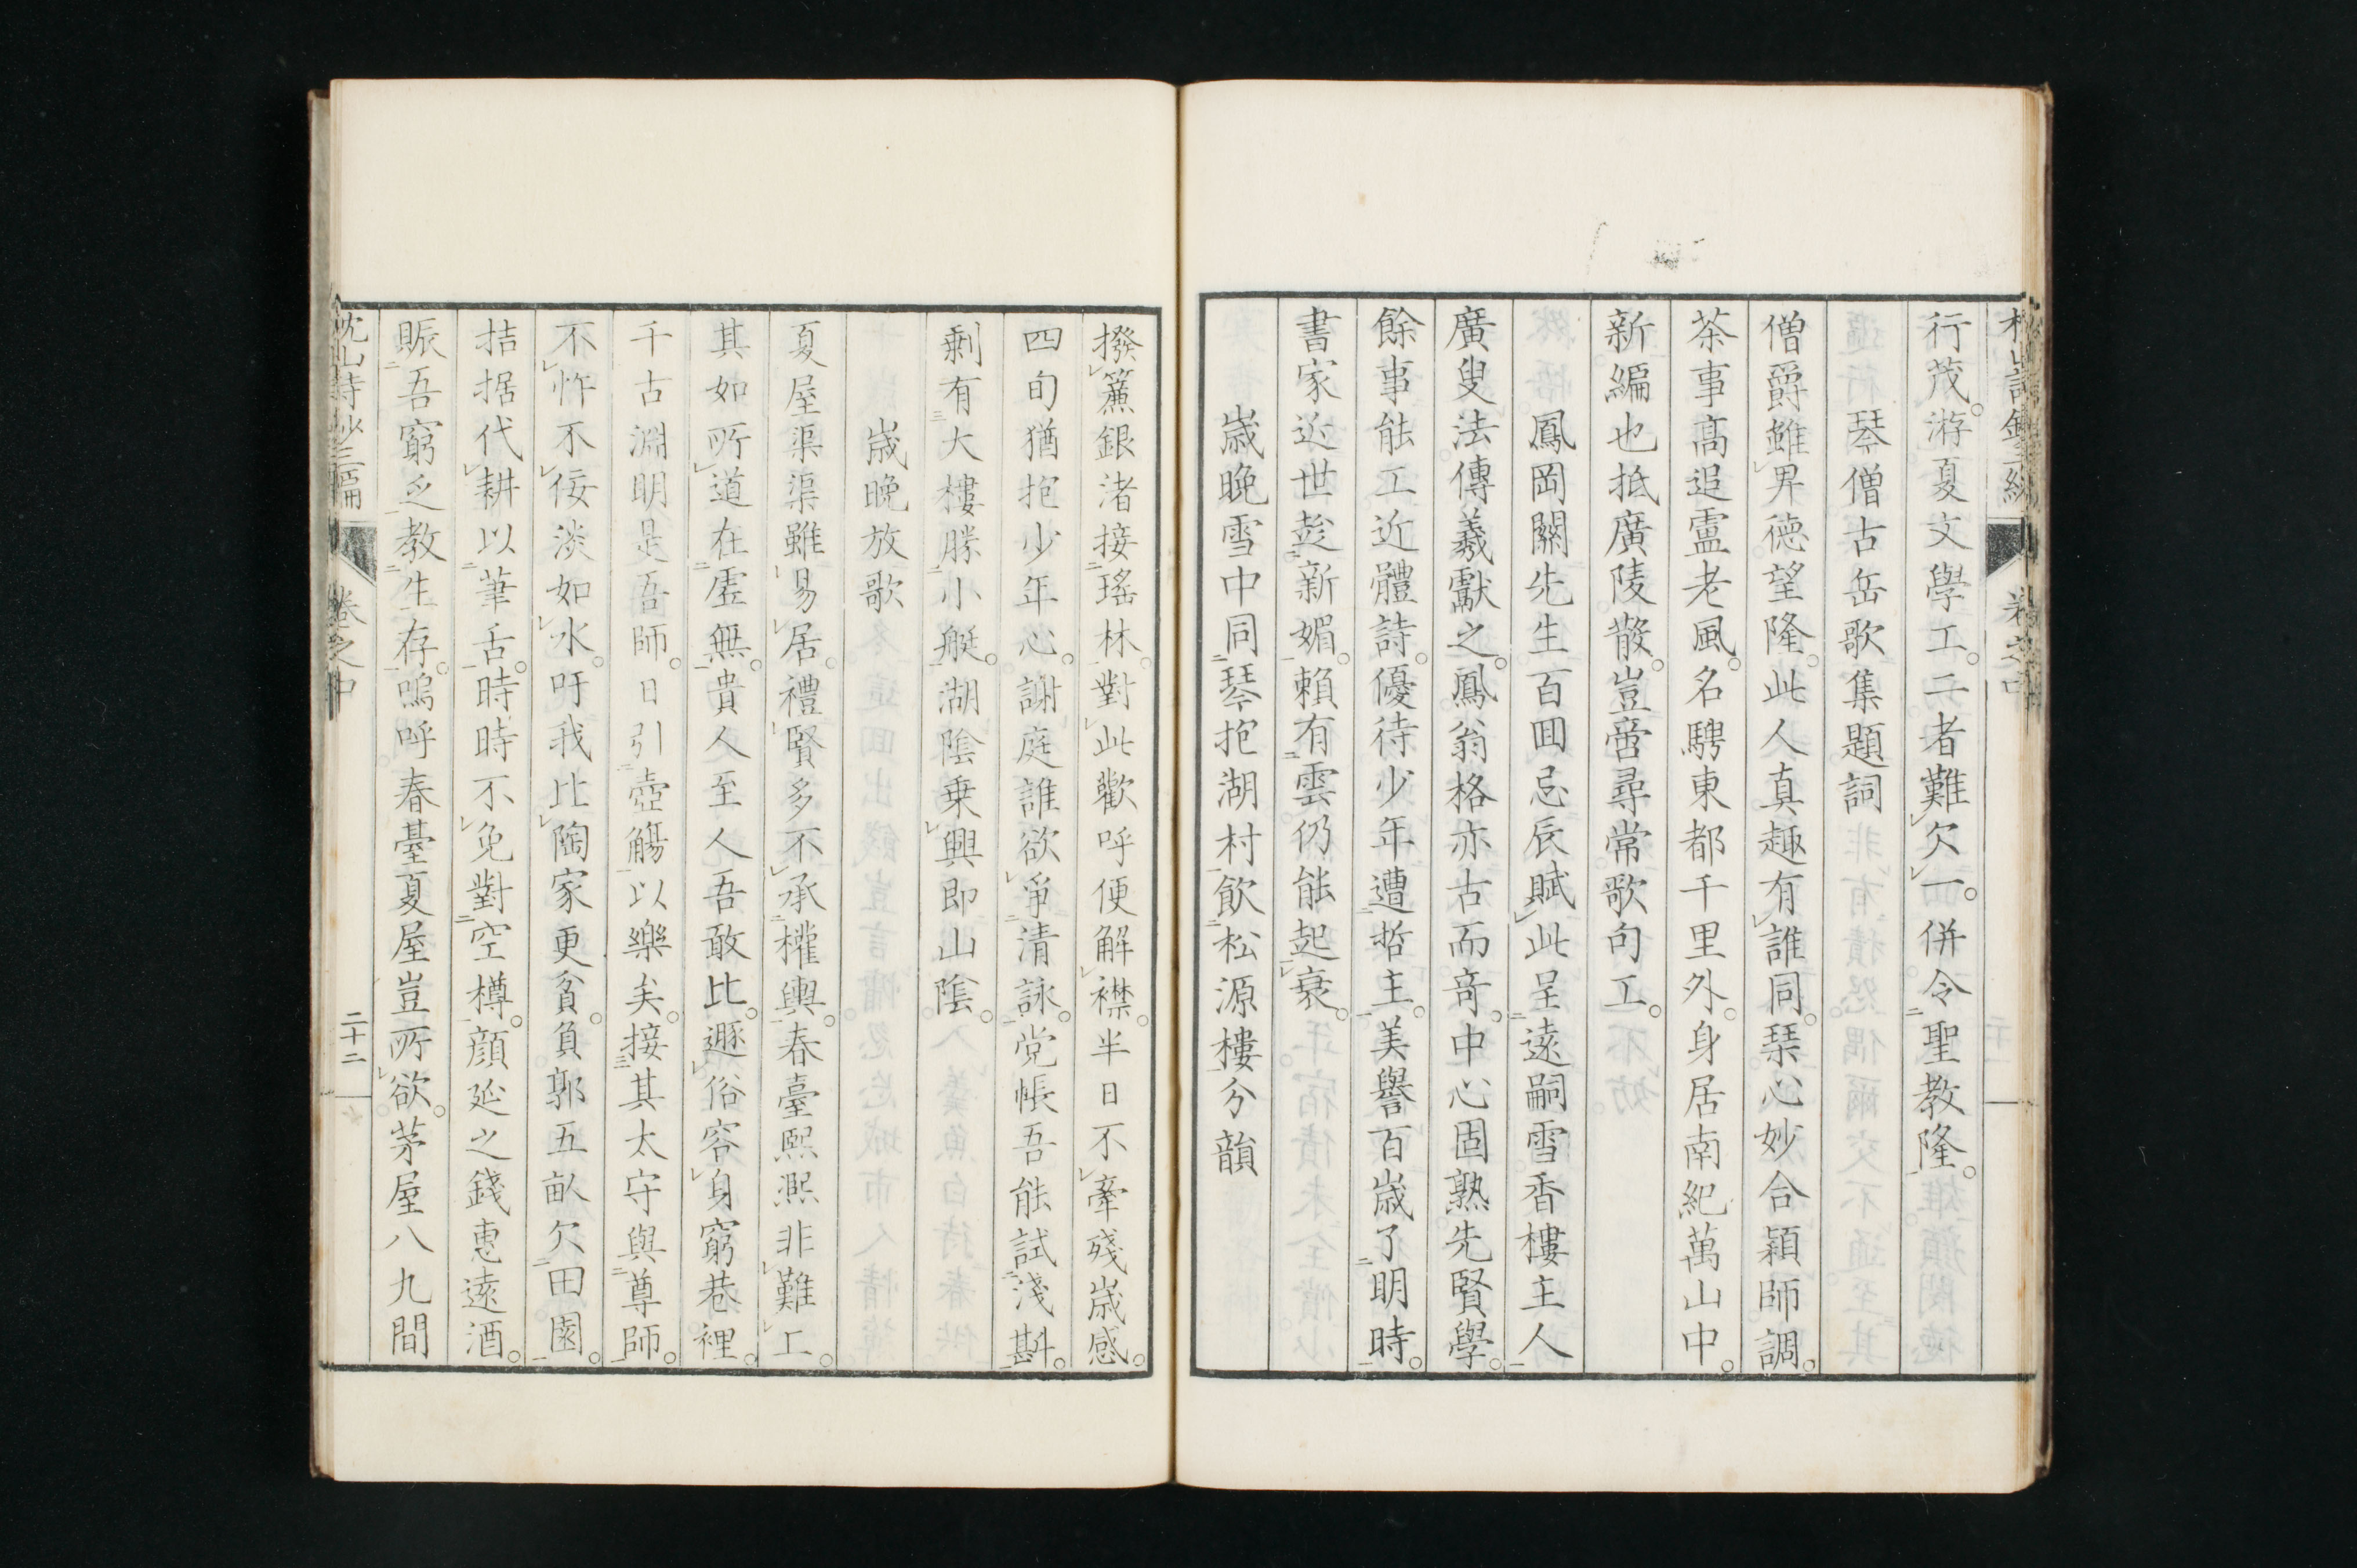 行茂。游夏文學工。二者難欠一。併令聖教隆。
琴僧古岳歌集題詞
僧爵雖昇德望隆。此人真趣有誰同。琹心妙合穎師調。
茶事高追盧老風。名騁東都千里外。身居南紀萬山中。
新編也抵廣陵散。豈啻尋常歌句工。
鳳岡關先生百回忌辰賦此呈遠嗣雪香樓主人
廣叟法傳羲獻之。鳳翁格亦古而奇。中心固熟先賢學。
餘事能工近體詩。優待少年遭哲主。美譽百歲了明時。
書家近世趁新媚。賴有雲仍能起衰。
歲晚雪中同琴抱湖村飲松源樓分韻
撥簾銀渚接瑤林。對此歡呼便解襟。半日不牽殘歲感。
四旬猶抱少年心。謝庭誰欲爭清詠。党帳吾能試淺斟。
剩有大樓勝小艇。湖陰乗興即山陰。
歲晚放歌
夏屋渠渠雖易居。禮賢多不承權輿。春臺熙熙非難工。
其如所道在虛無。貴人至人吾敢比。遯俗容身窮巷裡。
千古淵明是吾師。日引壺觴以樂矣。接其太守與尊師。
不忤不佞淡如水。吁我比陶家更貧。負郭五畝欠田園。
拮据代耕以筆舌。時時不免對空樽。顔延之錢惠遠酒。
賑吾窮乏教生存。嗚呼春臺夏屋豈所欲。茅屋八九間
枕山詩鈔三編
卷之中
二十二